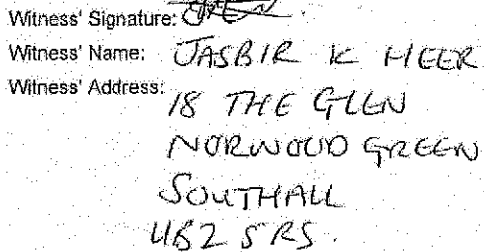 Witness' Signature:
Witness' Name: JASBIR K HEER
Witness' Address: 18 THE GLEN
NORWOOD GREEN
SOUTHALL
UB2 5RS.